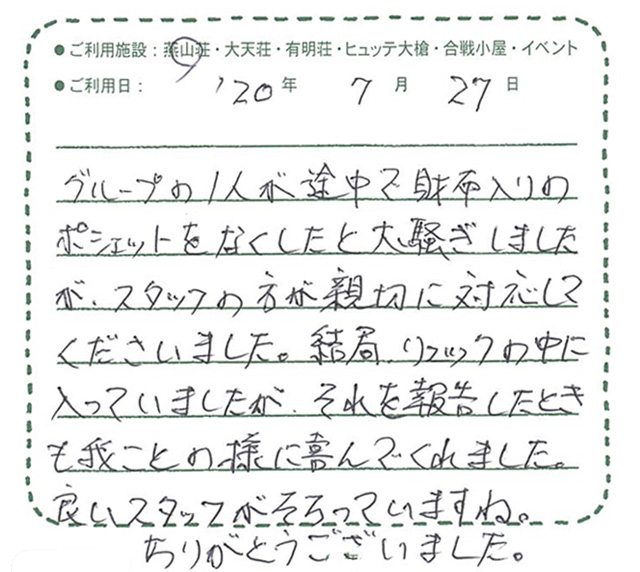 ●ご利用施設：燕山荘・大天荘・有明荘・ヒュッテ大槍・合戦小屋・イベント
●ご利用日： '20年 7月 27日
グループの1人が途中で財布入りの
ポシェットをなくしたと大騒ぎしました
が、スタッフの方が親切に対応して
くださいました。結局、リュックの中に
入っていましたが、それを報告したとき
も我ことの様に喜んでくれました。
良いスタッフがそろっていますね。
ありがとうございました。